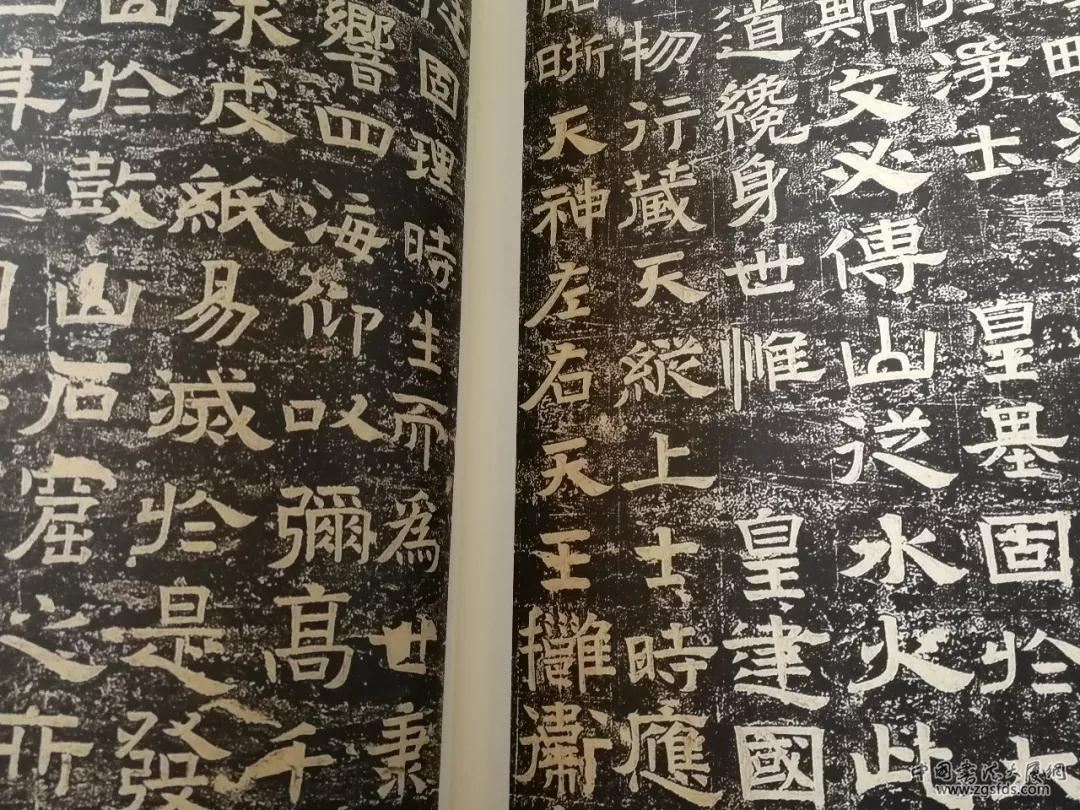 於淨土 皇基固於
斯文必傳山從水火此
道纔身世惟 皇建國
物行藏天縱上士時應
晰天神左右天王擁衛
固理時生而為世秉
響四海仰以彌高千
皮紙易滅於是發
於鼓山石窟之所
年三
中国书法大展网
www.zgsfds.com